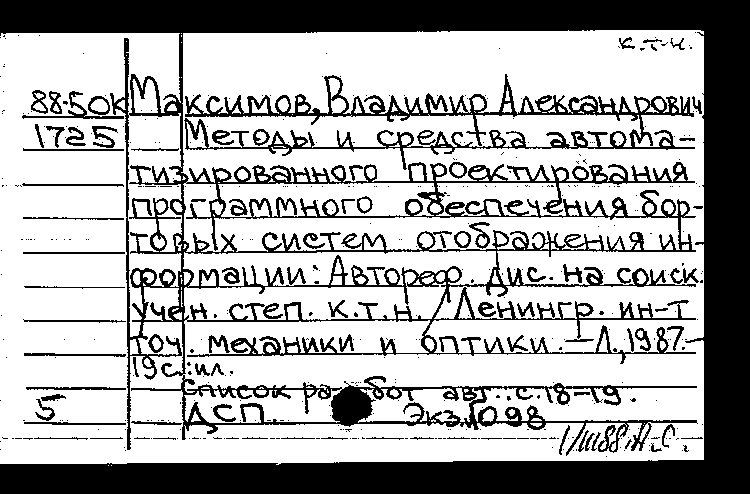 к.т.н.
88-5ОК Максимов, Владимир Александрович
1725 Методы и средства автома-
тизированного проектирования
программного обеспечения бор-
товых систем отображения ин-
формации: Автореф. дис. на соиск.
учен. степ. к.т.н. / Ленингр. ин-т
точ. механики и оптики. – Л., 1987. –
19 с.: ил.
Список работ авт.: с. 18-19.
5 ДСП Экз. 1098